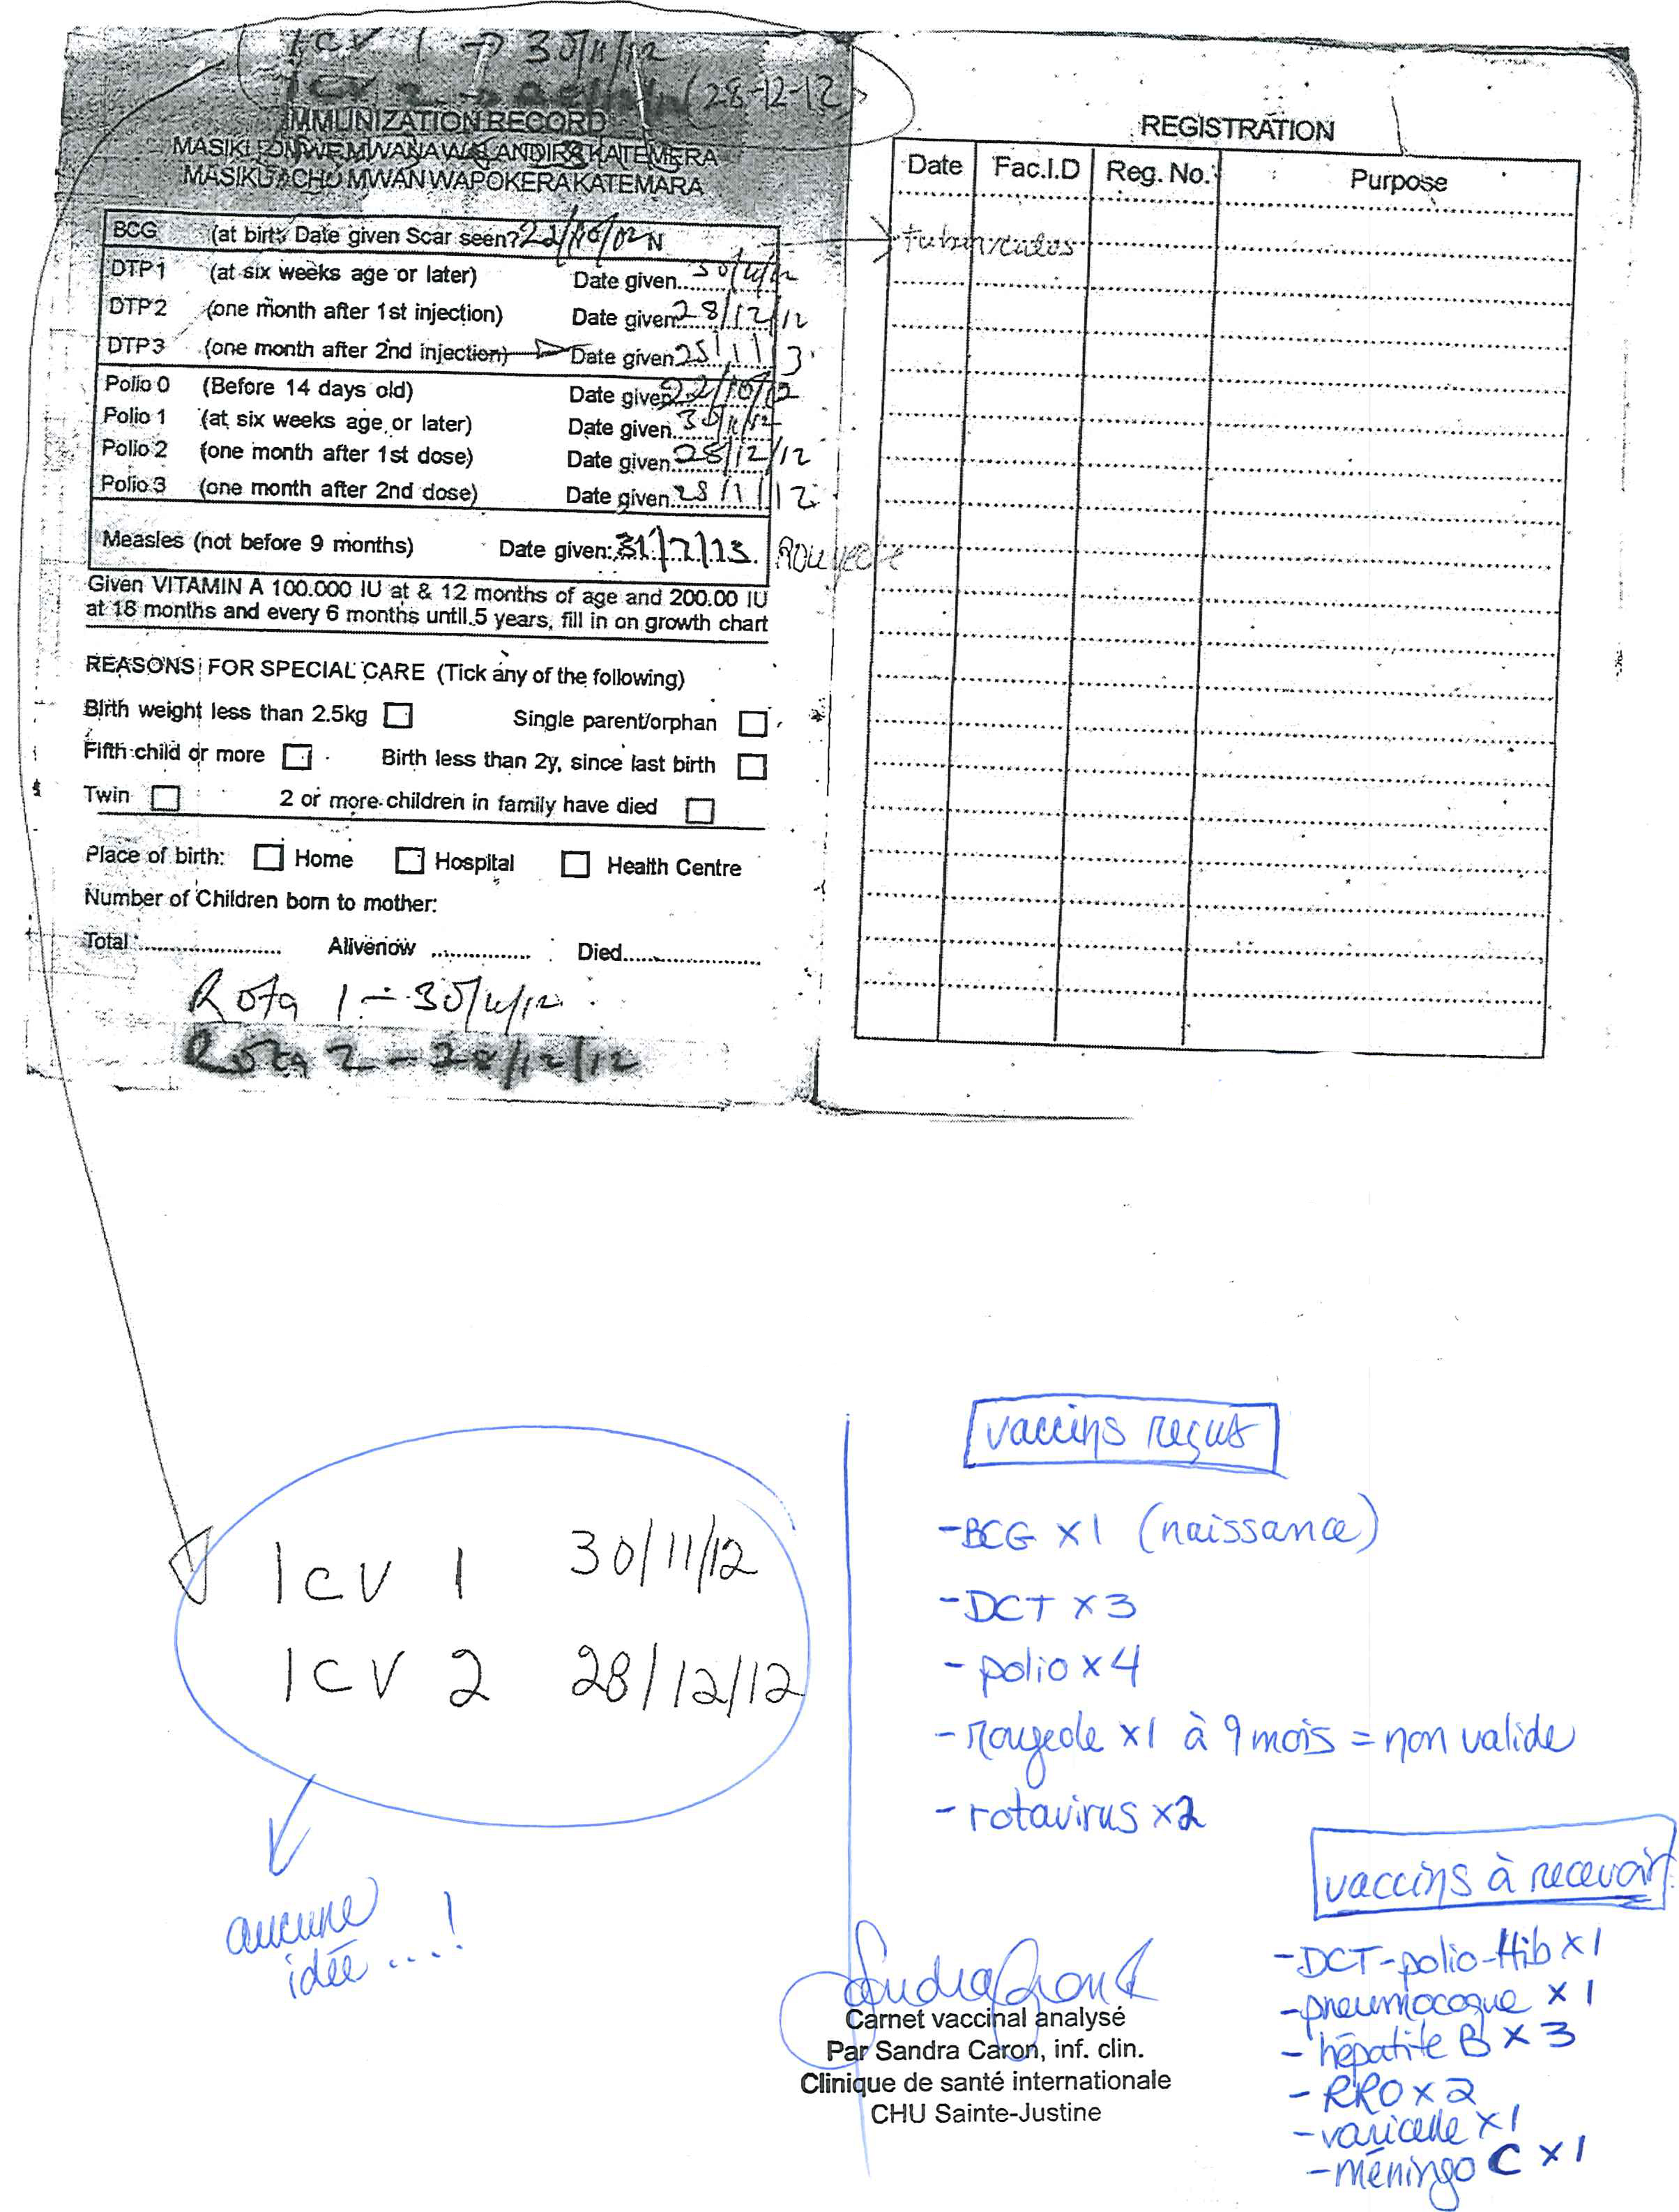 1CV 1 → 30/11/12
1CV 2 → (28-12-12)
IMMUNIZATION RECORD
MASIKU ACHO MWAN WAPOKERA KATEMARA
BCG (at birth Date given Scar seen? 22/10/02 N
DTP1 (at six weeks age or later) Date given 30/11/12
DTP2 (one month after 1st injection) Date given 28/12/12
DTP3 (one month after 2nd injection) Date given 25/1/13
Polio 0 (Before 14 days old) Date given 22/10/12
Polio 1 (at six weeks age or later) Date given 30/11/12
Polio 2 (one month after 1st dose) Date given 28/12/12
Polio 3 (one month after 2nd dose) Date given 25/1/12
Measles (not before 9 months) Date given: 31/7/13. Rougeole
Given VITAMIN A 100.000 IU at & 12 months of age and 200.00 IU
at 18 months and every 6 months until 5 years, fill in on growth chart
REASONS FOR SPECIAL CARE (Tick any of the following)
Birth weight less than 2.5kg Single parent/orphan
Fifth child or more Birth less than 2y, since last birth
Twin 2 or more children in family have died
Place of birth: Home Hospital Health Centre
Number of Children born to mother:
Total Alivenow Died
Rota 1 - 30/11/12
Rota 2 - 28/12/12
REGISTRATION
Date Fac.I.D Reg. No. Purpose
1CV 1 30/11/12
1CV 2 28/12/12
aucune
idée....!
vaccins reçus
- BCG x1 (naissance)
- DCT x3
- polio x4
- rougeole x1 à 9 mois = non valide
- rotavirus x2
vaccins à recevoir
- DCT-polio-Hib x1
- pneumocoque x1
- hépatite B x3
- RRO x2
- varicelle x1
- méningo C x1
Carnet vaccinal analysé
Par Sandra Caron, inf. clin.
Clinique de santé internationale
CHU Sainte-Justine